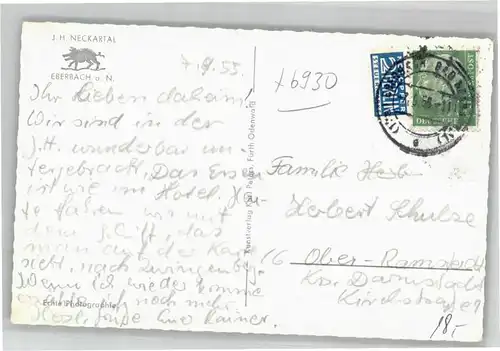 J. H. NECKARTAL
EBERBACH a. N.
7.9.55.
Ihr Lieben daheim!
Wir sind in der
J.H. wunderbar un-
tergebracht. Das Essen
ist wie im Hotel. Heu-
te fahren wir mit
dem Schiff, das
man auf der Karte
sieht, nach Zwingenberg.
Wenn ich wieder komme
noch mehr.
Herzl. Grüße Euer Rainer.
Echte Photographie
Kunstverlag Peter, Fürth Odenwald
+6930
NOTOPFER
2
BERLIN
Familie
Herbert Schulze
16 Ober-Ramstadt
Krs. Darmstadt
Kirchstraße
18,-